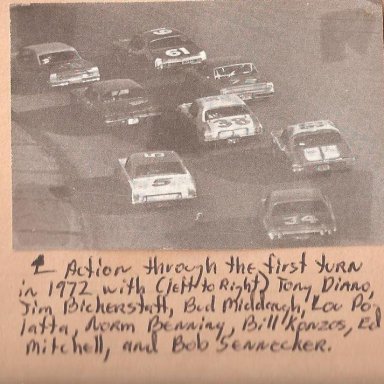 61
38
5
34
Action through the first turn
in 1972 with (left to Right) Tony Diano,
Jim Bickerstaff, Bud Middaugh, Lou Po-
latta, Norm Benning, Bill Konzos, Ed
Mitchell, and Bob Sennecker.